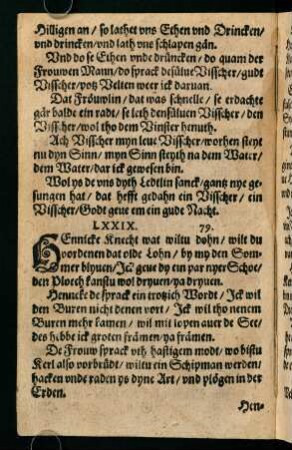 Hilligen an / so lathet vns Ethen vnd Drincken /
vnd drincken / vnd lath vns schlapen gân.
Vnd do se Ethen vnde drüncken / do quam der
Frouwen Mann / do sprack de sülue Visscher / gudt
Visscher / potz Velten weer ick daruan.
Dat Fröuwlin / dat was schnelle / se erdachte
gâr balde ein radt / se leth den süluen Visscher / den
Visscher / wol tho dem Vinster henuth.
Ach Visscher myn leue Visscher / worhen steyt
nu dyn Sinn / myn Sinn steyth na dem Water /
dem Water / dar ick gewesen bin.
Wol ys de vns dyth Ledtlin sanck / gantz nye ge-
sungen hat / dat hefft gedahn ein Visscher / ein
Visscher / Godt geue em ein gude Nacht.
LXXIX. 79.
HEnnicke Knecht wat wiltu dohn / wilt du
vordenen dat olde Lohn / by my den Som-
mer blyuen / Ick geue dy ein par nyer Schoe /
den Ploech kanstu wol dryuen / ya dryuen.
Hennecke de sprack ein trotzich Wordt / Ick wil
den Buren nicht denen vort / Ick wil tho nenem
Buren mehr kamen / wil mil lopen auer de See /
des hebbe ick groten främen / ya främen.
De Frouw sprack vth hastigem modt / wo bistu
Kerl also vorbrüdt / wiltu ein Schipman werden /
hacken vnde raden ys dyne Art / vnd plögen in der
Erden.
Hen-